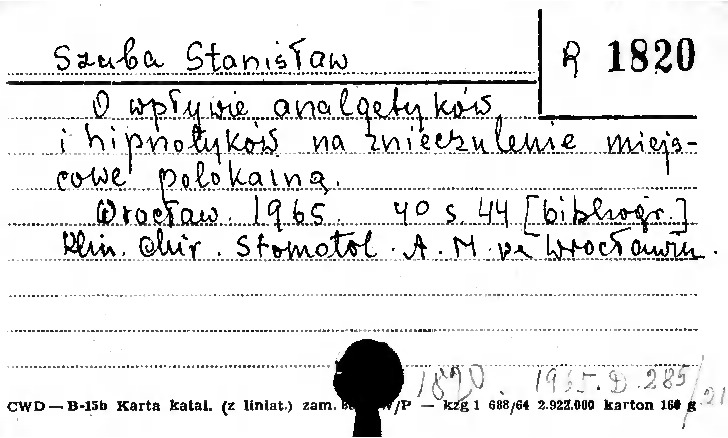 Szuba Stanisław
R 1820
O wpływie analgetyków
i hipnotyków na znieczulenie miejs-
cowe polokainą.
Wrocław. 1965. 40 s. 44 [bibliogr.]
Klin. Chir. Stomatol. A. M. we Wrocławiu.
1820. 1965.D.285/21
CWD — B-15b Karta katal. (z liniat.) zam. W/P — kzg 1 688/64 2.922.000 karton 160 g